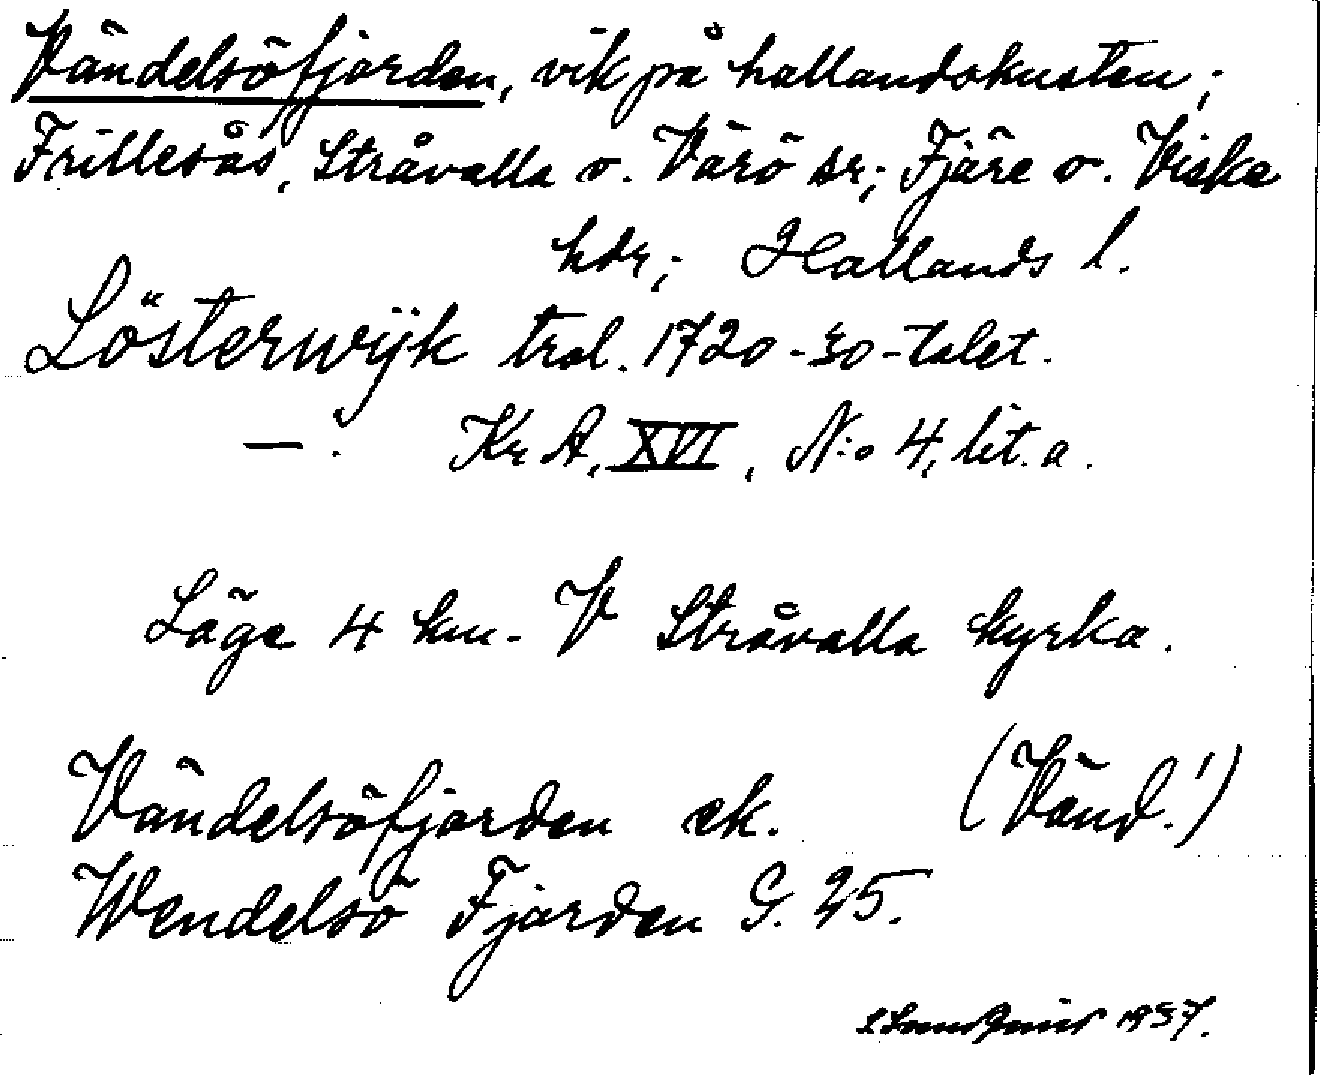 Vändelsöfjorden, vik på hallandskusten;
Frillesås, Stråvalla o. Värö sr; Fjäre o. Viske
hdr; Hallands l.
Lösterwijk trol. 1720-30-talet.
— : Kr A, XVI, N:o 4, lit. a.
Läge 4 km. V Stråvalla kyrka.
Vändelsöfjorden ek. (Vänd.!)
Wendelsö Fjorden G. 25.
1957.